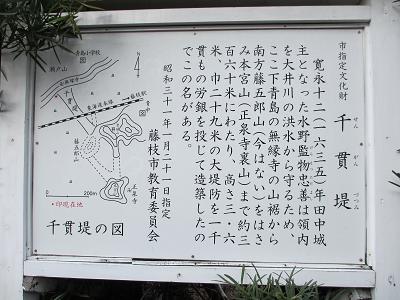 市指定文化財
千貫堤
せんがんづつみ
寛永十二(一六三五)年田中城
主となった水野監物忠善は領内
を大井川の洪水から守るため、
ここ下青島の無縁寺の山裾から
南方藤五郎山(今はない)をはさ
み本宮山(正泉寺裏山)まで約三
百六十米にわたり、高さ三・六
米、巾二十九米の大堤防を一千
貫もの労銀を投じて造築したの
でこの名がある。
昭和三十一年一月二十一日指定
藤枝市教育委員会
青島小学校
瀬戸山
無縁寺
千貫堤
東海道本線
藤枝駅
青中
藤五郎山
正泉寺
0
200m
●印現在地
千貫堤の図